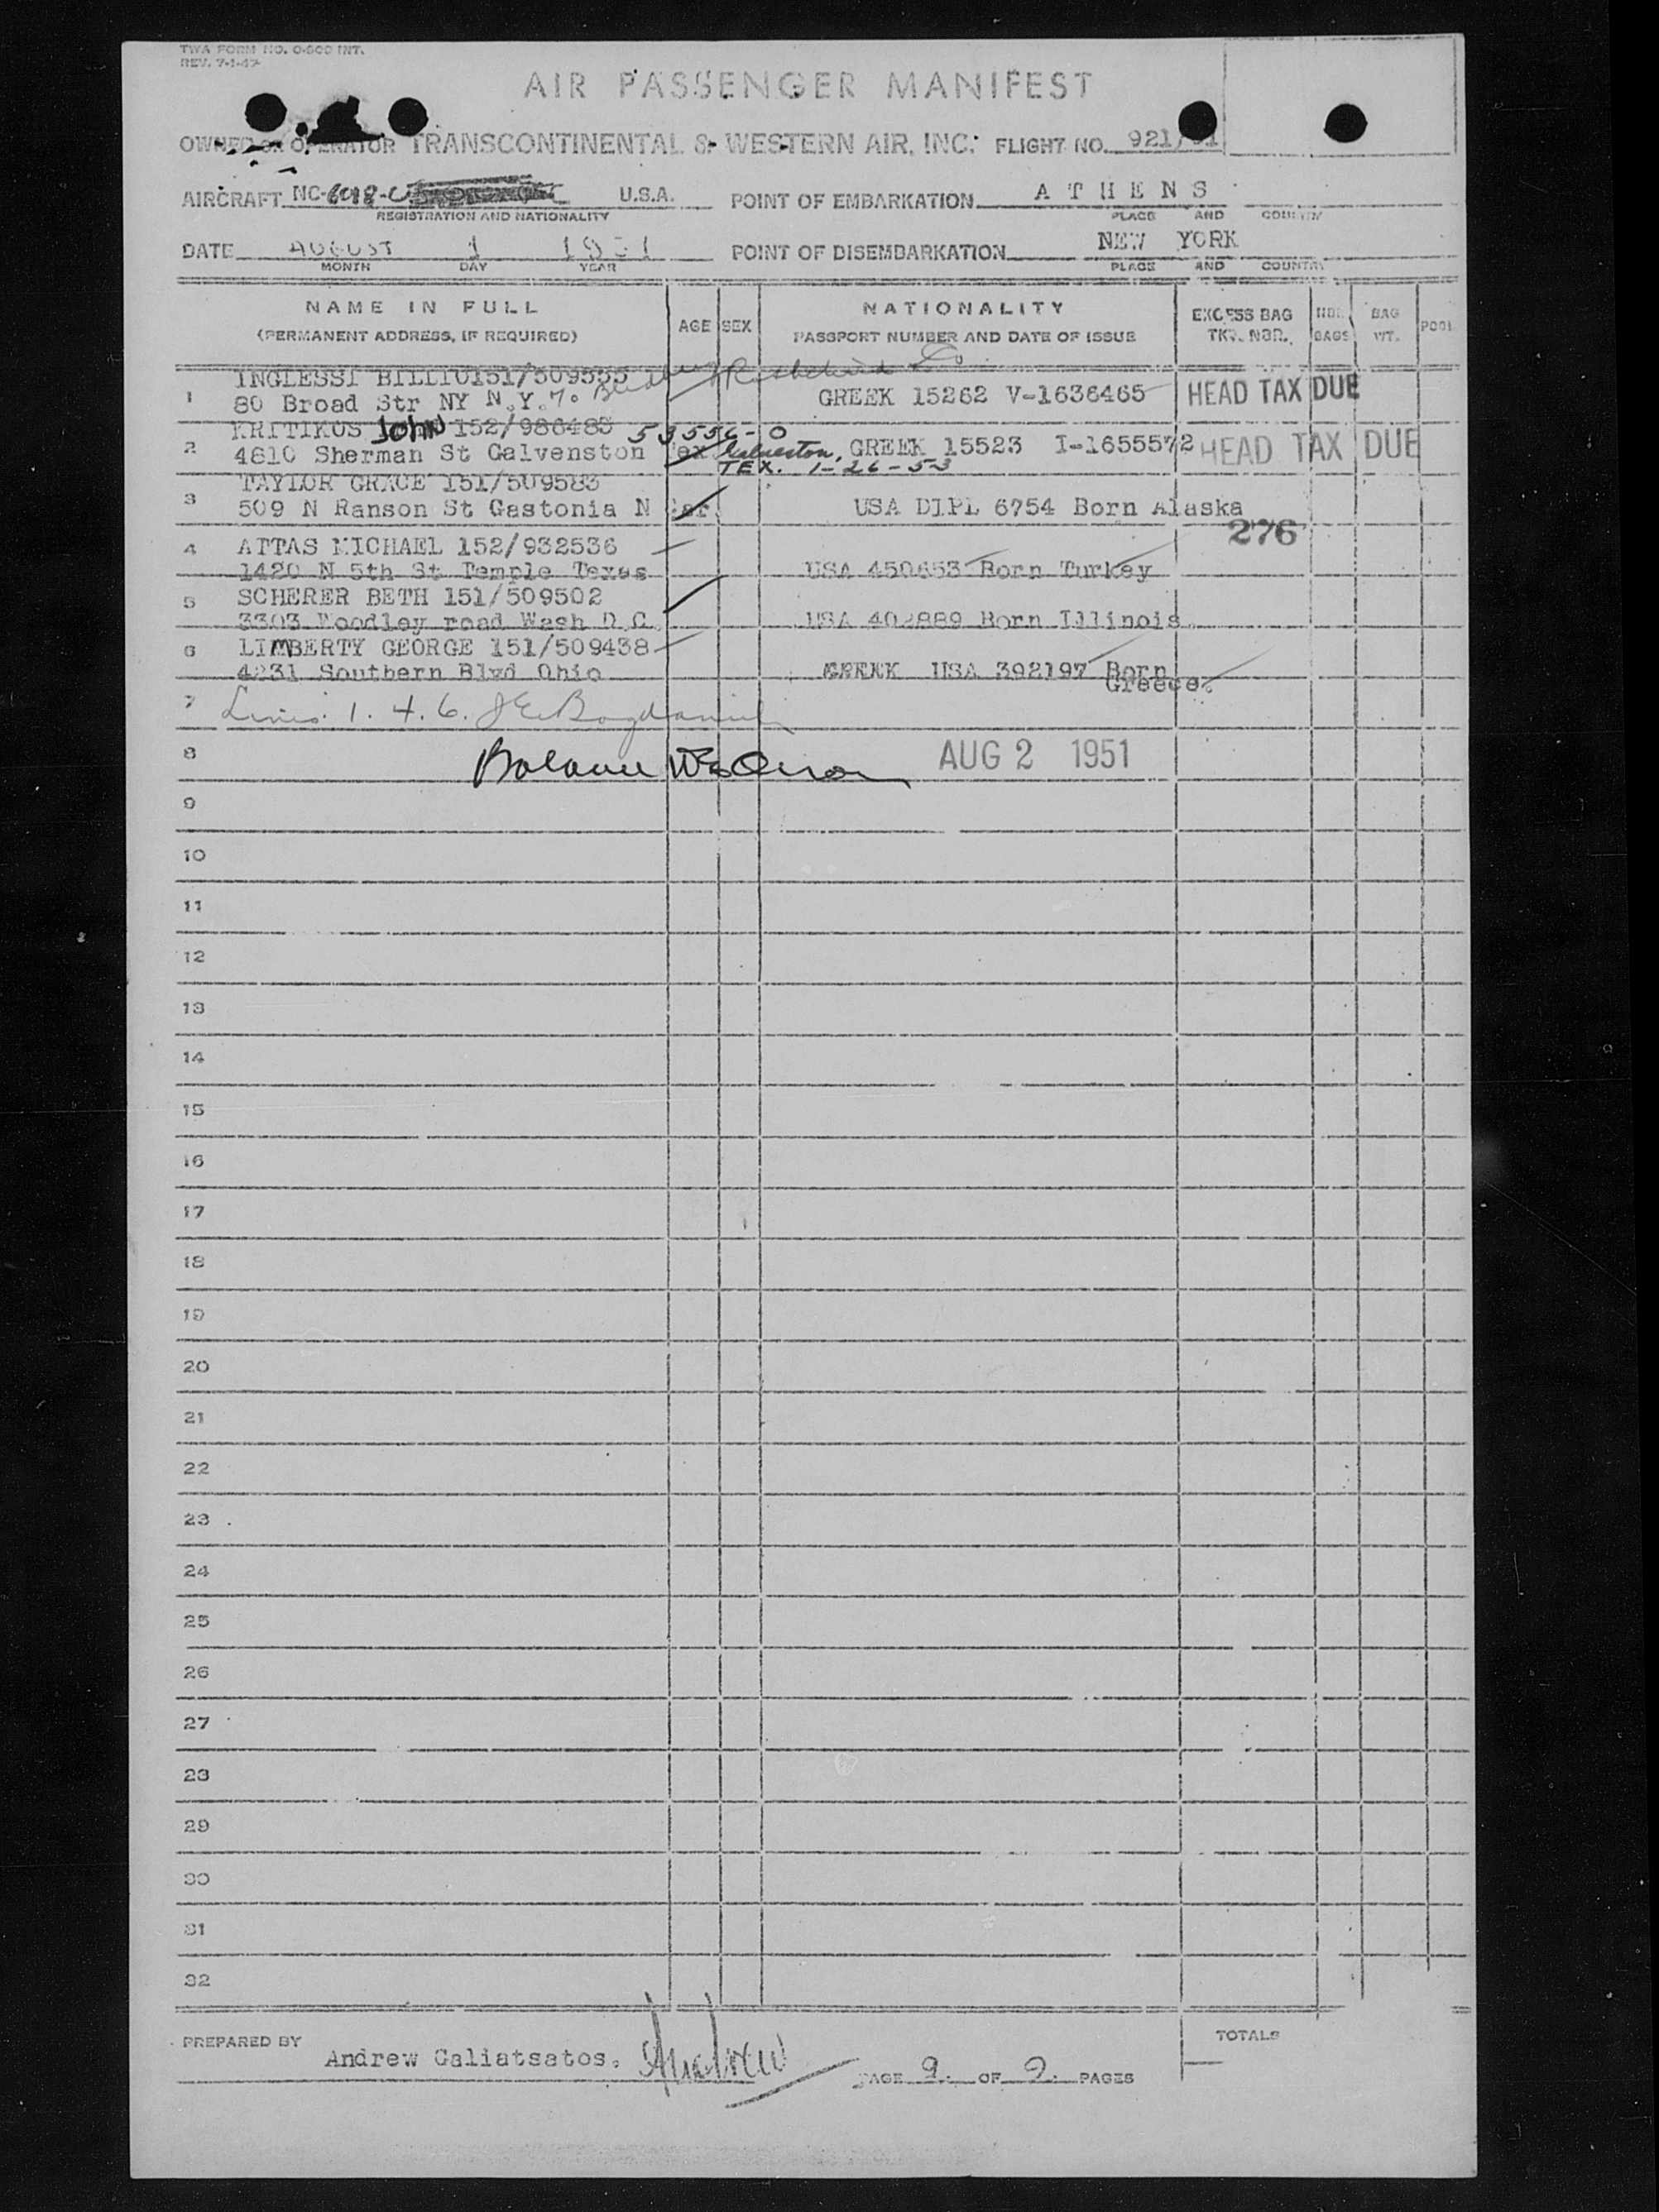 TWA FORM NO. 0-600 INT.
REV. 7-1-47
AIR PASSENGER MANIFEST
OWNER OR OPERATOR TRANSCONTINENTAL & WESTERN AIR, INC. FLIGHT NO. 921/
AIRCRAFT NC-6018-C U.S.A. POINT OF EMBARKATION ATHENS
REGISTRATION AND NATIONALITY PLACE AND COUNTRY
DATE AUGUST 1 1951 POINT OF DISEMBARKATION NEW YORK
MONTH DAY YEAR PLACE AND COUNTRY
NAME IN FULL
(PERMANENT ADDRESS, IF REQUIRED) AGE SEX NATIONALITY
PASSPORT NUMBER AND DATE OF ISSUE EXCESS BAG
TKT. NBR. NBR.
BAGS BAG
WT. POOL
INGLESSI BILLIO 151/509555
1 80 Broad Str NY N.Y. 7. GREEK 15262 V-1636465 HEAD TAX DUE
KRITIKOS John 152/986485 53556-0
2 4610 Sherman St Galvenston Tex Galveston, GREEK 15523 I-1655572 HEAD TAX DUE
TEX. 1-26-53
TAYLOR GRACE 151/509583
3 509 N Ranson St Gastonia N Car. USA DIPL 6754 Born Alaska
276
4 ATTAS MICHAEL 152/932536
1420 N 5th St Temple Texas USA 450653 Born Turkey
5 SCHERER BETH 151/509502
3303 Woodley road Wash D.C. USA 402889 Born Illinois.
6 LIMBERTY GEORGE 151/509438
4231 Southern Blvd Ohio GREEK USA 392197 Born
Greece.
7 Lines. 1. 4. 6.
8 AUG 2 1951
9
10
11
12
13
14
15
16
17
18
19
20
21
22
23
24
25
26
27
28
29
30
31
32
PREPARED BY Andrew Galiatsatos. Andrew TOTALS
PAGE 9. OF 9. PAGES